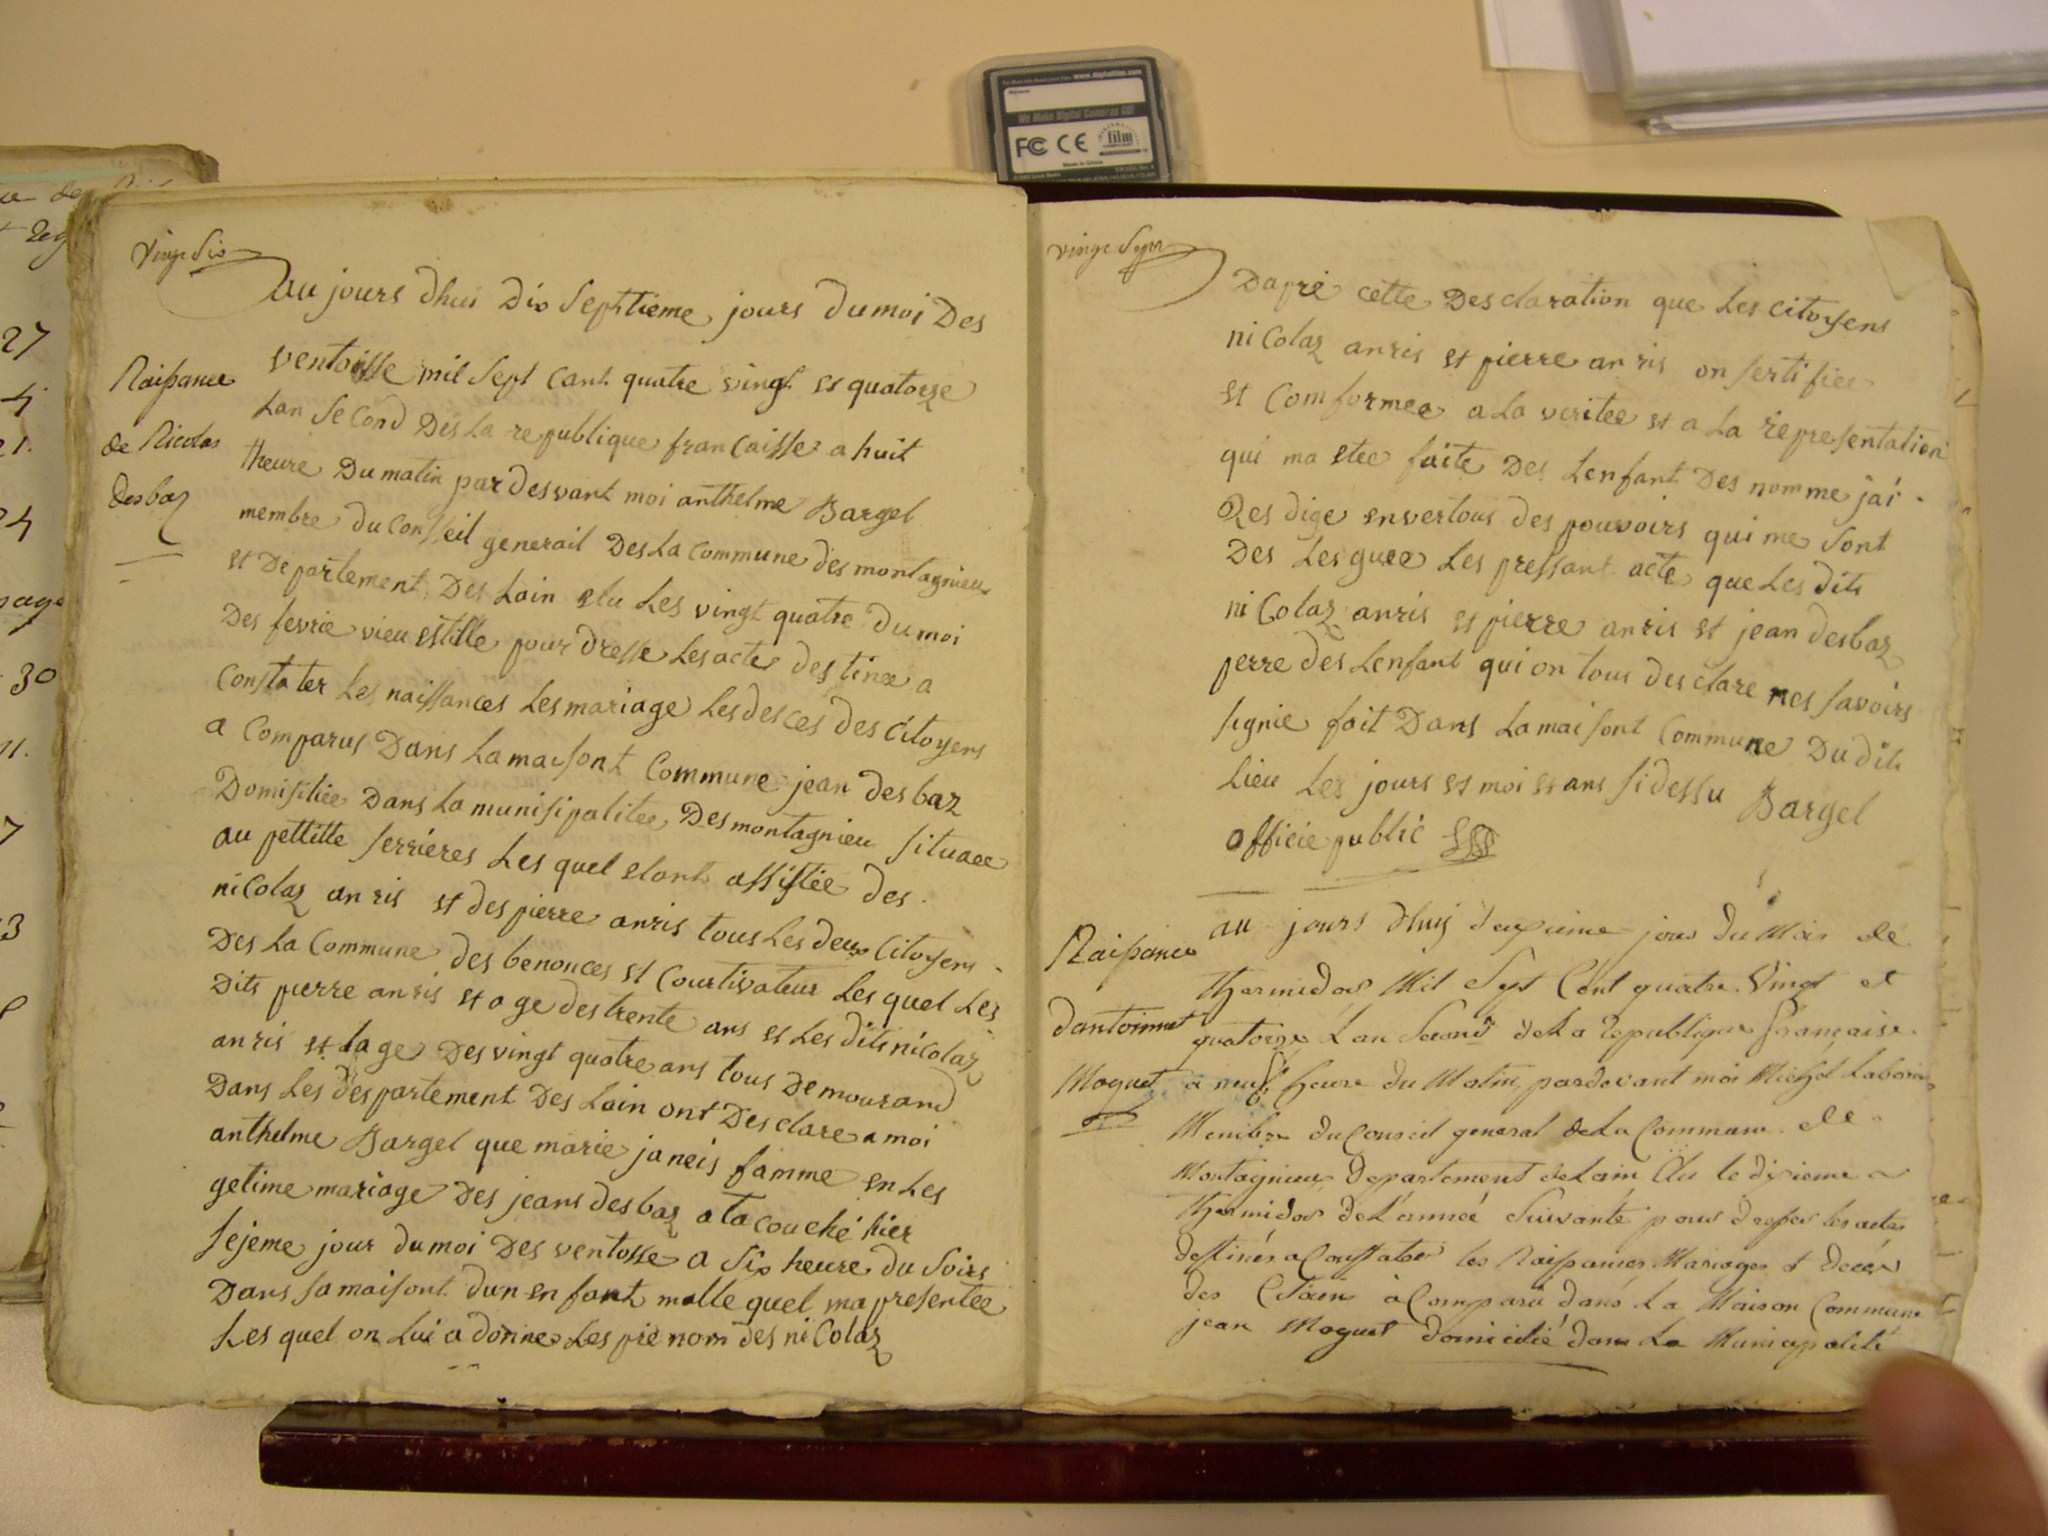 vingt Six
au jours dhui Dix Septtieme jours du moi Des
ventosse mil Sept cant quatre vingt et quatorze
Lan Second Des La republique francaisse a huit
theure Du matin par desvant moi anthelme Bargel
membre du Conseil generail Des La commune des montagnieu
et Departement Des Lain elu Les vingt quatre du moi
Des fevrie vieu estille pour dresse Les acte destinee a
Constater Les naissances Les mariage Les desces des Citoyens
a Comparus Dans La maisont Commune jean desbaz
Domisiliee Dans La munisipalitee Des montagnieu situaee
au pettitte serrieres Les quel etant assistee des
nicolaz anris et des pierre anris tous Les deux Citoyens
Des La Commune des benonces et Courtivateur Les quel Les
Dits pierre anris et age des trente ans et Les dits nicolaz
anris et lage Des vingt quatre ans tous Demourand
Dans Les despartement Des Lain ont Desclare a moi
anthelme Bargel que marie janeis famme en Les
getime mariage Des jeans desbaz a la couché hier
sejeme jour du moi Des ventosse a six heure du soirs
Dans sa maisont dun enfant malle quel ma presentee
Les quel on Lui a donne Les pre nom des nicolaz
Naissance
de Nicolas
desbaz
vingt Sept
Dapre cette Desclaration que Les citoyens
nicolaz anris et pierre anris on sertifiee
et comformee a La veritee et a La representation
qui ma etee faite Des Lenfant Des nomme jai
Resdige envertous des pouvoirs qui me sont
Des Lesguee Les pressant acte que Les dits
nicolaz anris et pierre anris et jean desbaz
perre des Lenfant qui on tous desclare nes savoirs
signie fait Dans La maisont Commune Du dits
Lieu Les jours et moi et ans si dessu Bargel
officie public
Naissance
dantoinne
Moguet
au jours dhuy deuxieme jour du Mois de
thermidor Mil Sept Cent quatre Vingt et
quatorze L'an Second de La republique française
a neuf heure du Matin, pardevant moi Michel
Membre du Conseil general de La Commune de
Montagnieu Departement de Lain Elu le dixieme
thermidor de L'année Suivante pour dresser les actes
destinés a Constater les Naissances Mariages et deces
des Citoiens a Comparu dans La Maison Commune
jean Moguet domicilié dans La Municipalité
27
30
www.digitalfilm.com
We Make Digital Cameras GO!
FC CE
film